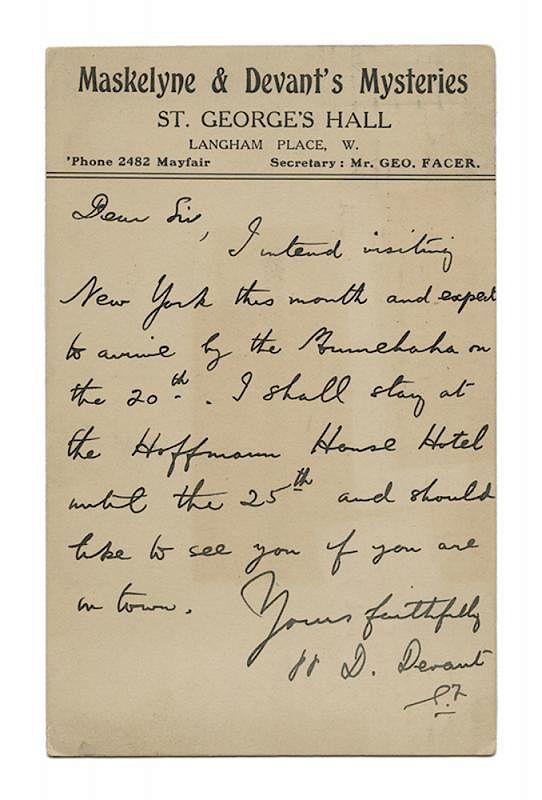 Maskelyne & Devant's Mysteries
ST. GEORGE'S HALL
LANGHAM PLACE, W.
'Phone 2482 Mayfair Secretary: Mr. GEO. FACER.
Dear Sir,
I intend visiting
New York this month and expect
to arrive by the on
the 20th. I shall stay at
the Hoffmann House Hotel
until the 25th and should
like to see you if you are
in town.
Yours faithfully
D. Devant